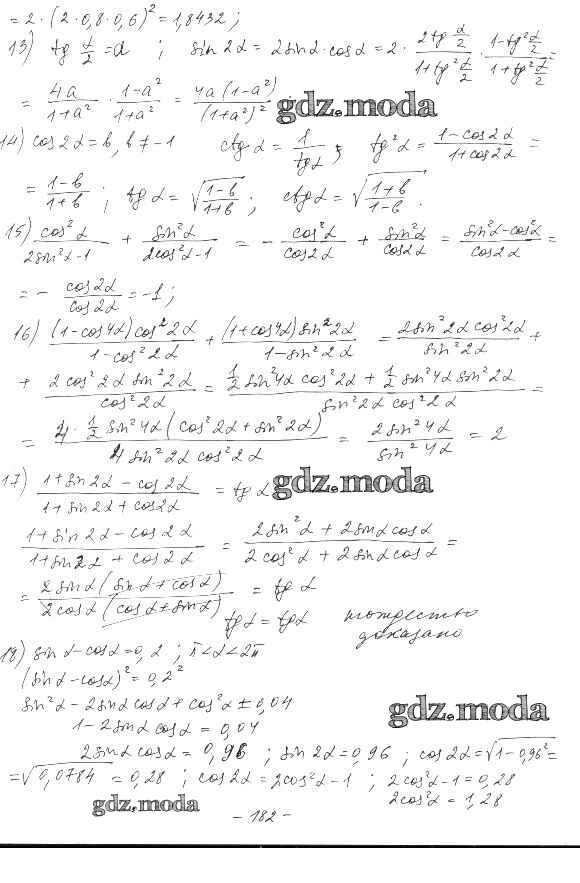 = 2 · (2 · 0,8 · 0,6)² = 1,8432 ;
13) tg α/2 = a ; sin 2α = 2 sin α · cos α = 2 · 2tg α/2 / 1+tg² α/2 · 1-tg² α/2 / 1+tg² α/2 =
= 4a / 1+a² · 1-a² / 1+a² = 4a(1-a²) / (1+a²)² ;
gdz.moda
14) cos 2α = b, b ≠ -1 ctg α = 1 / tg α ; tg² α = 1-cos 2α / 1+cos 2α =
= 1-b / 1+b ; tg α = √(1-b / 1+b) ; ctg α = √(1+b / 1-b) .
15) cos² α / 2 sin² α -1 + sin² α / 2 cos² α -1 = - cos² α / cos 2α + sin² α / cos 2α = sin² α - cos² α / cos 2α =
= - cos 2α / cos 2α = -1 ;
16) (1-cos 4α) cos² 2α / 1-cos² 2α + (1+cos 4α) sin² 2α / 1-sin² 2α = 2 sin² 2α cos² 2α / sin² 2α +
+ 2 cos² 2α sin² 2α / cos² 2α = ½ sin² 4α cos² 2α + ½ sin² 4α sin² 2α / sin² 2α cos² 2α =
= 4 · ½ sin² 4α (cos² 2α + sin² 2α) / 4 sin² 2α cos² 2α = 2 sin² 4α / sin² 4α = 2
17) 1+ sin 2α - cos 2α / 1+ sin 2α + cos 2α = tg α
gdz.moda
1+ sin 2α - cos 2α / 1+ sin 2α + cos 2α = 2 sin² α + 2 sin α cos α / 2 cos² α + 2 sin α cos α =
= 2 sin α (sin α + cos α) / 2 cos α (cos α + sin α) = tg α
tg α = tg α тождество
доказано
18) sin α - cos α = 0,2 ; π < α < 2π
(sin α - cos α)² = 0,2²
sin² α - 2 sin α cos α + cos² α = 0,04
gdz.moda
1 - 2 sin α cos α = 0,04
2 sin α cos α = 0,96 ; sin 2α = 0,96 ; cos 2α = √(1-0,96²) =
= √0,0784 = 0,28 ; cos 2α = 2 cos² α -1 ; 2 cos² α -1 = 0,28
gdz.moda 2 cos² α = 1,28
- 182 -